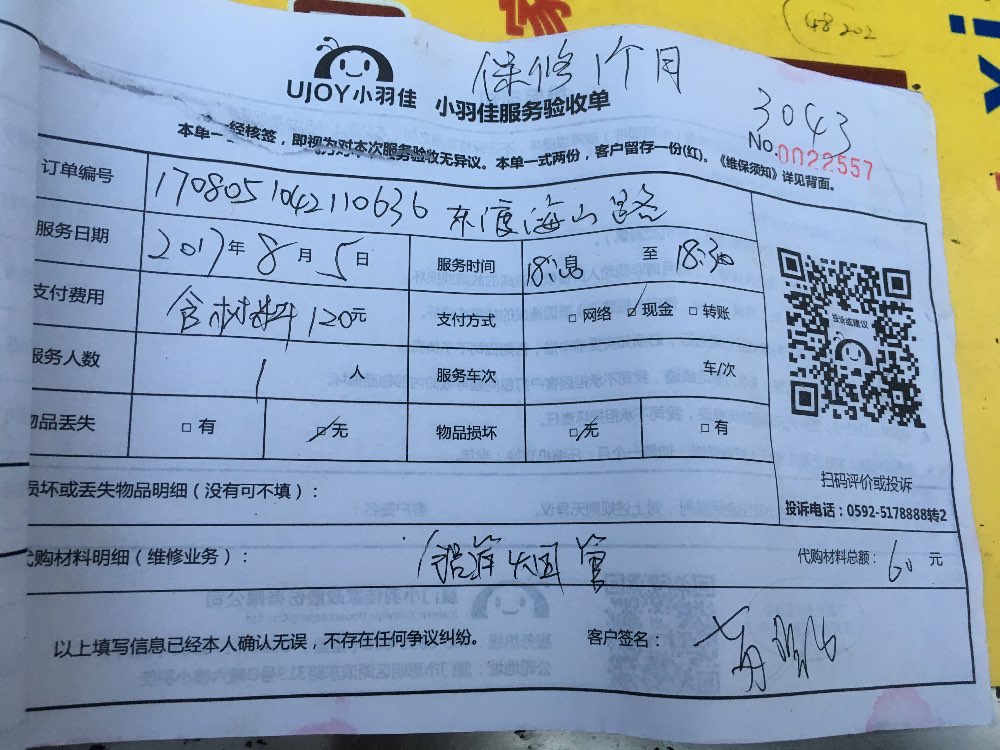 48202
保修1个月
UJOY小羽佳 小羽佳服务验收单
3043
No.0022557
本单一经核签，即视为对本次服务验收无异议。本单一式两份，客户留存一份(红)。《维保须知》详见背面。
订单编号 1708051042110636 东渡海山路
服务日期 2017年8月5日 服务时间 至
支付费用 含材料120元 支付方式 □网络 □现金 □转账
服务人数 1 人 服务车次 车/次
物品丢失 □有 □无 物品损坏 □无 □有
投诉或建议
扫码评价或投诉
投诉电话：0592-5178888转2
损坏或丢失物品明细（没有可不填）：
代购材料明细（维修业务）： 代购材料总额：60元
以上填写信息已经本人确认无误，不存在任何争议纠纷。 客户签名：